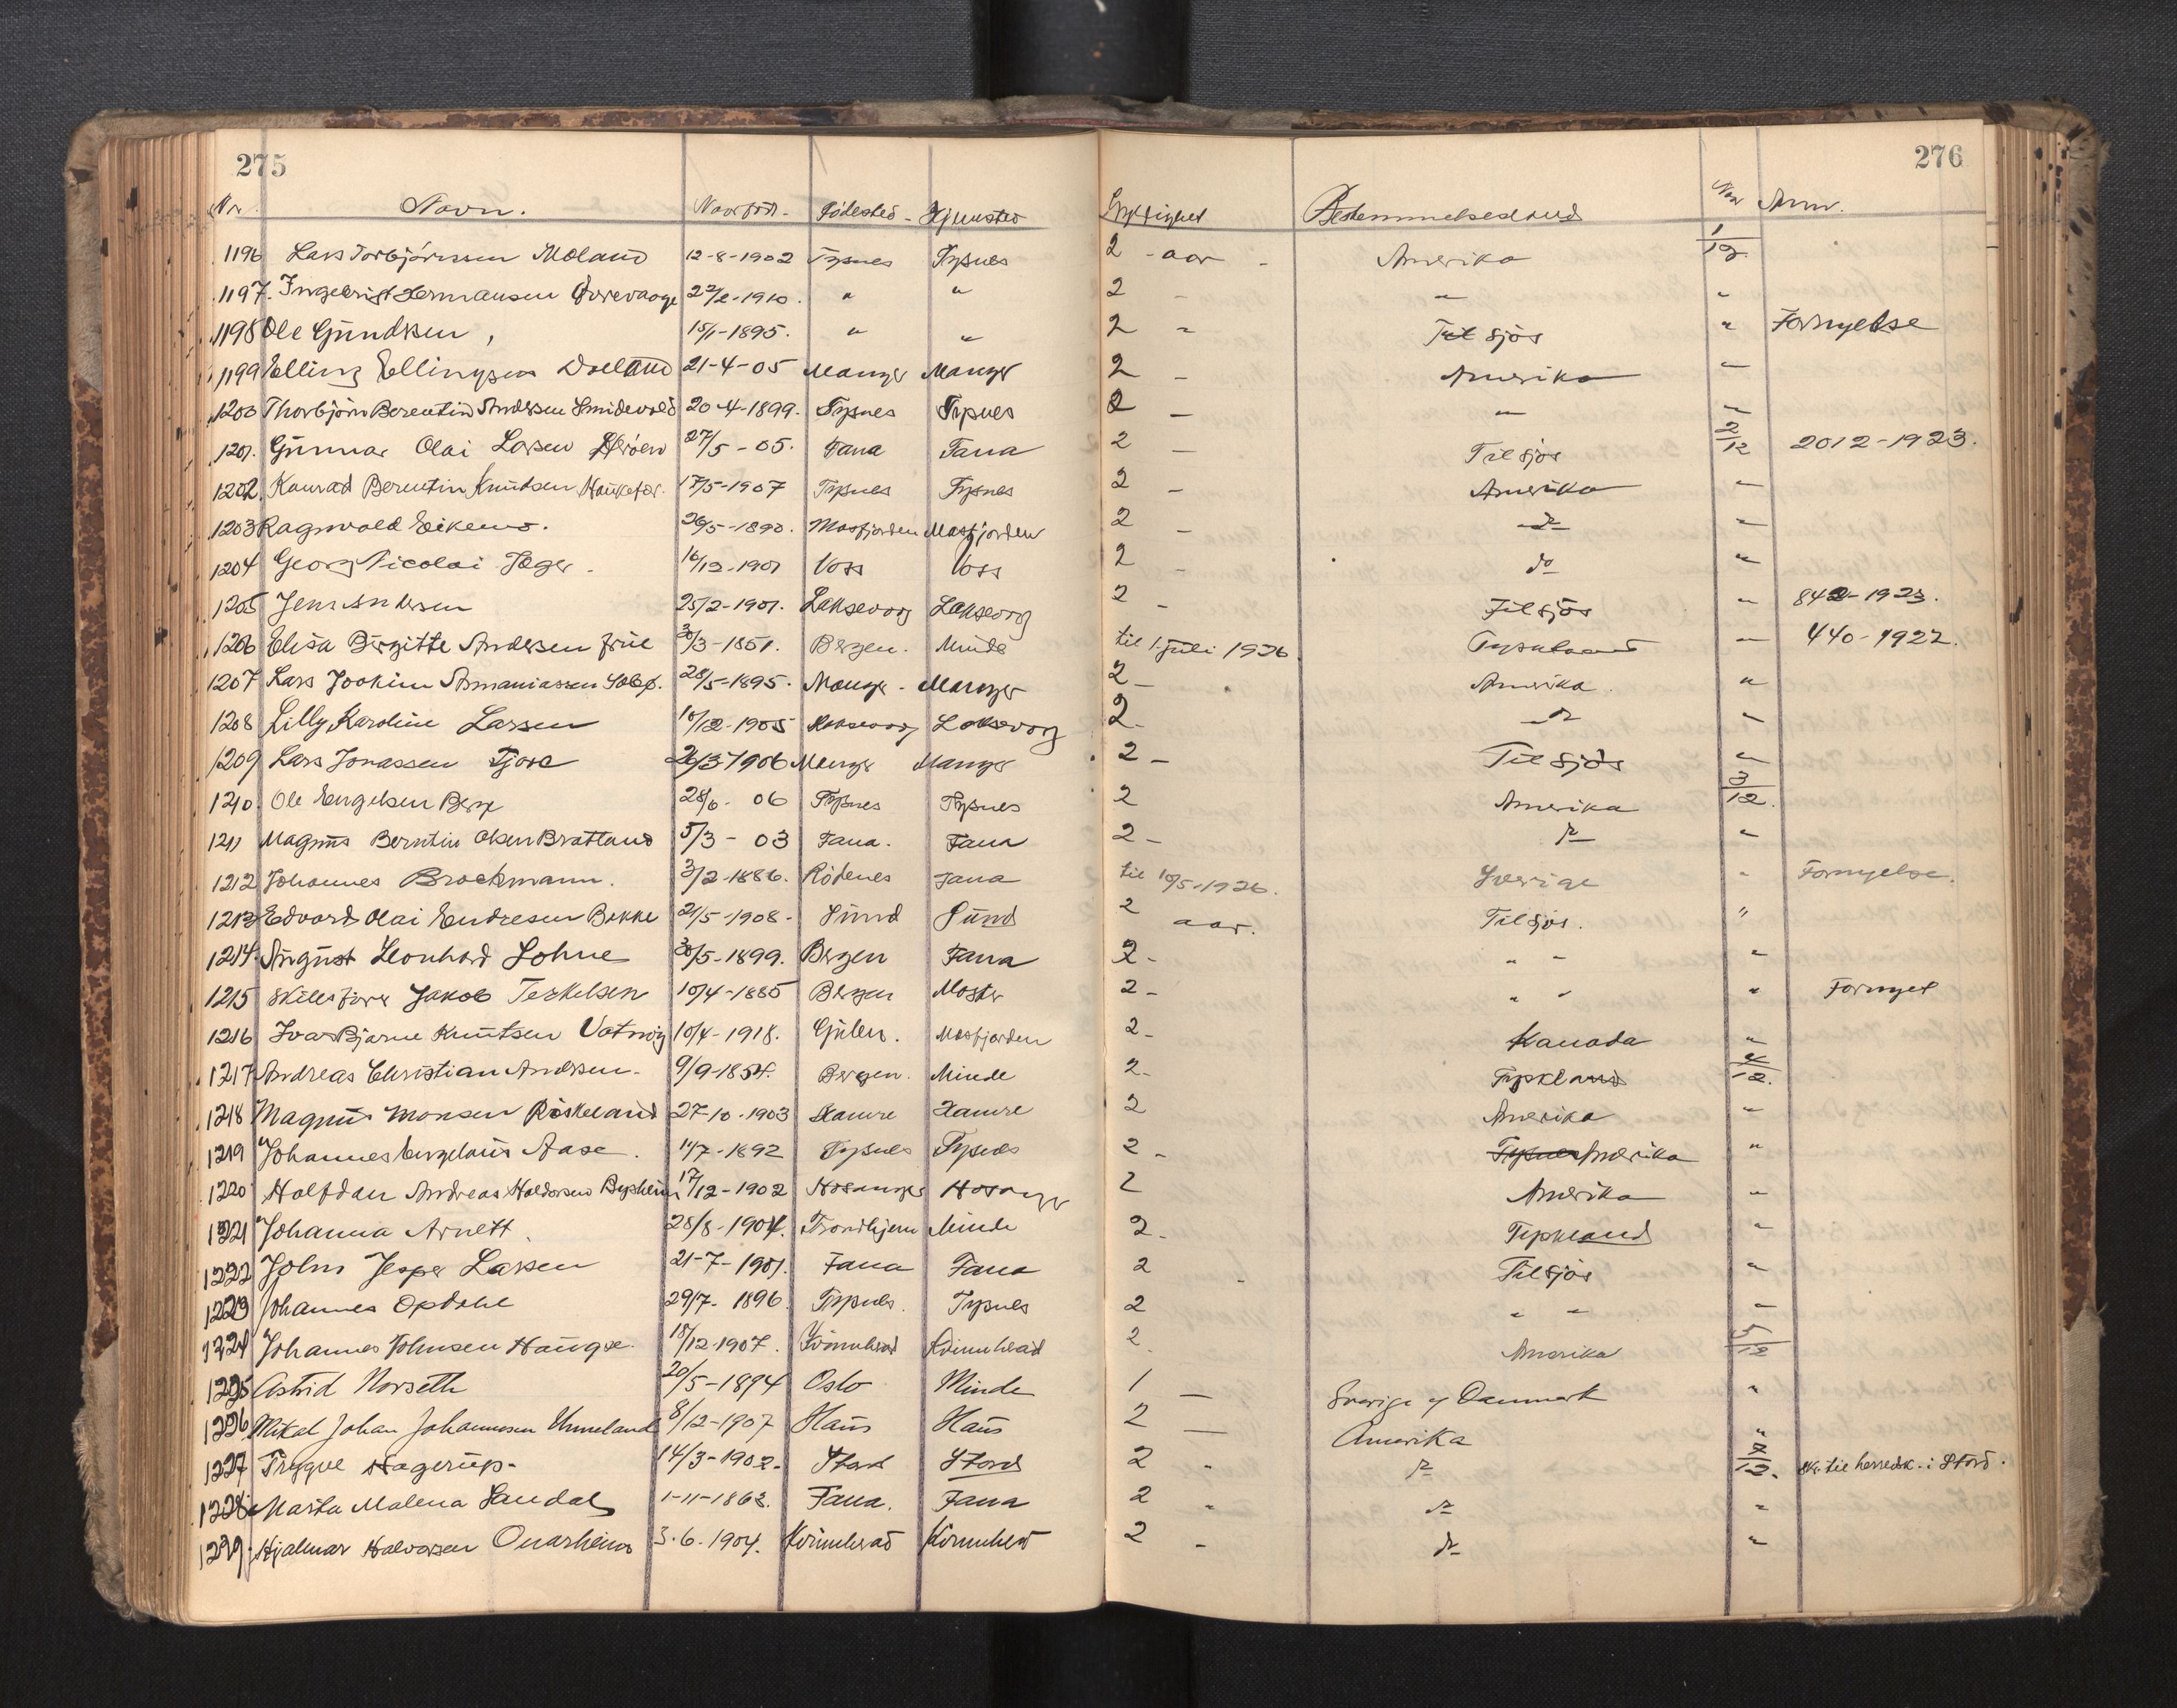 275 276
Nr. Navn. Naar född. Födested - Hjemsted Gyldighet Bestemmelsesland Naar Anm.
1196 Lars Torbjörnsen Moland 12-8-1902 Tysnes Tysnes 2 - aar - Amerika 1/12
1197. Ingebrigt Hermansen 22/2-1910. " " 2 - " "
1198 Ole Gundersen, 15/1-1895. " " 2 " Til sjös " Fornyelse
1199 Elling Ellingsen 21-4-05 Manger Manger 2 - Amerika "
1200 Thorbjörn Berentin Andersen Smidevold 20-4-1899. Tysnes Tysnes 2 - " "
1201. Gunnar Olai Larsen 27/5-05. Fana Fana 2 - Til sjös 2/12 2012-1923.
1202. Konrad Berentin Knudsen 17/5-1907 Tysnes Tysnes 2 - Amerika "
1203 Ragnvald Eikemo. 26/5-1890. Masfjorden Masfjorden 2 - do "
1204 Georg Nicolai 16/12-1901 Voss Voss 2 - do "
1205 Jens Andersen 25/2-1901. Laksevaag Laksevaag 2 - Til sjös " 842-1923.
1206 Elisa Birgitte Andersen frue 30/3-1851. Bergen. Minde til 1. juli 1926 Tyskland " 440-1922.
1207 Lars Joakim 28/5-1895. Manger - Manger 2 - Amerika. "
1208 Lilly Karoline Larsen 10/12-1905 Laksevaag Laksevaag 2 - do "
1209 Lars Jonassen 26/3-1906 Manger Manger 2 - Til sjös "
1210. Ole Engelsen Berge 28/6-06 Tysnes Tysnes 2 Amerika 3/12.
1211 Magnus Berntin Olsen Brattland 5/3-03 Fana. Fana 2 - do "
1212 Johannes Brochmann. 3/2-1886. Rödenes Fana til 10/5-1926. Sverige " Fornyelse.
1213 Edvard Olai Endresen Bakke 21/5-1908- Sund Sund 2 aar. Til sjös. "
1214. August Leonhard Lohne 30/5-1899. Bergen Fana 2 - " " "
1215 Skibsförer Jakob Terkelsen 10/4-1885 Bergen Moster 2 - " " " Fornyet
1216 Ivar Bjarne Knutsen 10/4-1918. Gulen. Masfjorden 2 - Kanada "
1217 Andreas Christian Andersen. 9/9-1854. Bergen. Minde 2 - Tyskland 4/12.
1218 Magnus Monsen Röskeland 27-10-1903 Hamre Hamre 2 Amerika "
1219 Johannes Engelaus Aase. 11/7-1892 Tysnes Tysnes 2 - Tysnes Amerika "
1220 Halfdan Andreas Haldorsen Bysheim 17/12-1902 Hosanger Hosanger 2 Amerika "
1221 Johanna Arnett. 28/8-1904. Trondhjem Minde 2 - Tyskland "
1222 John Jesper Larsen 21-7-1901. Fana Fana 2 - Til sjös "
1223 Johannes Opdahl 29/7-1896. Tysnes. Tysnes 2 " " "
1224 Johannes Johnsen Hauge. 18/12-1907. Kvinnherad Kvinnherad 2. Amerika 5/12
1225 Astrid Norseth 20/5-1894 Oslo Minde 1 - Sverige og Danmark "
1226 Mikal Johan Johannesen Unneland 8/12-1907 Haus Haus 2 - Amerika "
1227 Trygve Hagerup. 14/3-1902. Stord Stord 2 - do 7/12. Skr. til herredsk. i Stord.
1228. Marta Malena Sandal 1-11-1862. Fana. Fana 2 " do "
1229. Hjalmar Halvorsen Onarheim 3.6.1904. Kvinnherad Kvinnherad 2 - do "